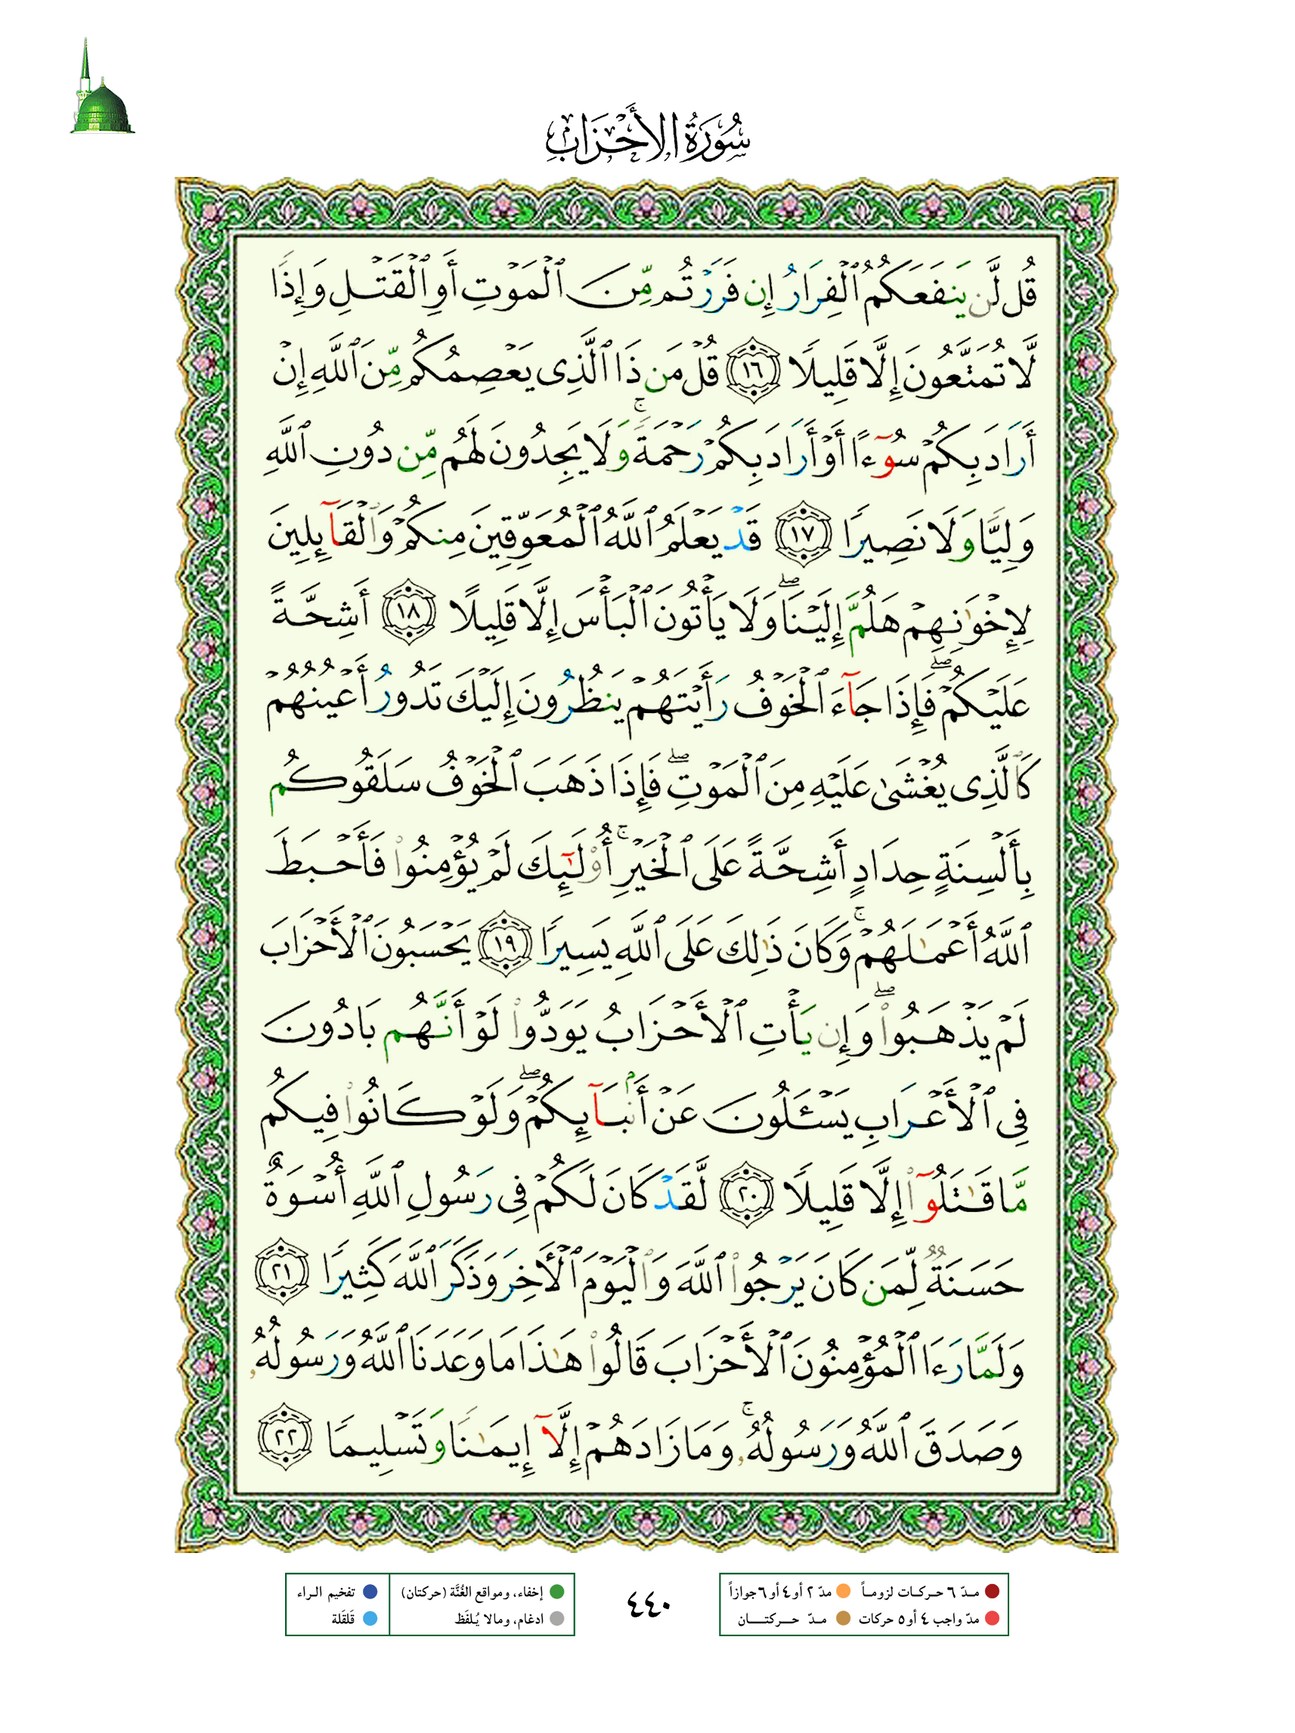 سُورَةُ الأَحْزَابِ
قُل لَّن يَنفَعَكُمُ ٱلْفِرَارُ إِن فَرَرْتُم مِّنَ ٱلْمَوْتِ أَوِ ٱلْقَتْلِ وَإِذًا
لَّا تُمَتَّعُونَ إِلَّا قَلِيلًا ١٦ قُلْ مَن ذَا ٱلَّذِى يَعْصِمُكُم مِّنَ ٱللَّهِ إِنْ
أَرَادَ بِكُمْ سُوٓءًا أَوْ أَرَادَ بِكُمْ رَحْمَةً ۚ وَلَا يَجِدُونَ لَهُم مِّن دُونِ ٱللَّهِ
وَلِيًّا وَلَا نَصِيرًا ١٧ قَدْ يَعْلَمُ ٱللَّهُ ٱلْمُعَوِّقِينَ مِنكُمْ وَٱلْقَآئِلِينَ
لِإِخْوَٰنِهِمْ هَلُمَّ إِلَيْنَا ۖ وَلَا يَأْتُونَ ٱلْبَأْسَ إِلَّا قَلِيلًا ١٨ أَشِحَّةً
عَلَيْكُمْ ۖ فَإِذَا جَآءَ ٱلْخَوْفُ رَأَيْتَهُمْ يَنظُرُونَ إِلَيْكَ تَدُورُ أَعْيُنُهُمْ
كَٱلَّذِى يُغْشَىٰ عَلَيْهِ مِنَ ٱلْمَوْتِ ۖ فَإِذَا ذَهَبَ ٱلْخَوْفُ سَلَقُوكُم
بِأَلْسِنَةٍ حِدَادٍ أَشِحَّةً عَلَى ٱلْخَيْرِ ۚ أُو۟لَـٰٓئِكَ لَمْ يُؤْمِنُوا۟ فَأَحْبَطَ
ٱللَّهُ أَعْمَـٰلَهُمْ ۚ وَكَانَ ذَٰلِكَ عَلَى ٱللَّهِ يَسِيرًا ١٩ يَحْسَبُونَ ٱلْأَحْزَابَ
لَمْ يَذْهَبُوا۟ ۖ وَإِن يَأْتِ ٱلْأَحْزَابُ يَوَدُّوا۟ لَوْ أَنَّهُم بَادُونَ
فِى ٱلْأَعْرَابِ يَسْـَٔلُونَ عَنْ أَنۢبَآئِكُمْ ۖ وَلَوْ كَانُوا۟ فِيكُم
مَّا قَـٰتَلُوٓا۟ إِلَّا قَلِيلًا ٢٠ لَّقَدْ كَانَ لَكُمْ فِى رَسُولِ ٱللَّهِ أُسْوَةٌ
حَسَنَةٌ لِّمَن كَانَ يَرْجُوا۟ ٱللَّهَ وَٱلْيَوْمَ ٱلْـَٔاخِرَ وَذَكَرَ ٱللَّهَ كَثِيرًا ٢١
وَلَمَّا رَءَا ٱلْمُؤْمِنُونَ ٱلْأَحْزَابَ قَالُوا۟ هَـٰذَا مَا وَعَدَنَا ٱللَّهُ وَرَسُولُهُۥ
وَصَدَقَ ٱللَّهُ وَرَسُولُهُۥ ۚ وَمَا زَادَهُمْ إِلَّآ إِيمَـٰنًا وَتَسْلِيمًا ٢٢
مـدّ ٦ حـركـات لزومـاً مدّ ٢ أو ٤ أو ٦ جوازاً
مدّ واجب ٤ أو ٥ حركات مـدّ حـــركتـــان
٤٤٠
إخفاء، ومواقع الغُنَّة (حركتان) تفخيم الـراء
ادغام، ومالا يُـلفَظ قلقلة